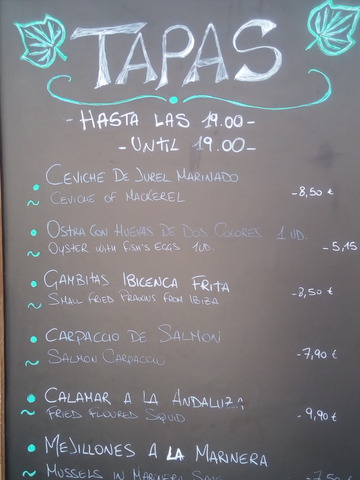 TAPAS
- HASTA LAS 19.00 -
- UNTIL 19.00 -
CEVICHE DE JUREL MARINADO
CEVICHE OF MACKEREL -8,50 €
OSTRA CON HUEVAS DE DOS COLORES 1 UD.
OYSTER WITH FISH'S EGGS 1UD. -5,15
GAMBITAS IBICENCA FRITA
SMALL FRIED PRAWNS FROM IBIZA -8,50 €
CARPACCIO DE SALMON
SALMON CARPACCIO -7,90 €
CALAMAR A LA ANDALUZA
FRIED FLOURED SQUID -9,90 €
MEJILLONES A LA MARINERA
MUSSELS IN -7,50 €